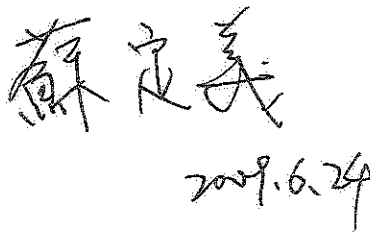 蘇定義
2009.6.24